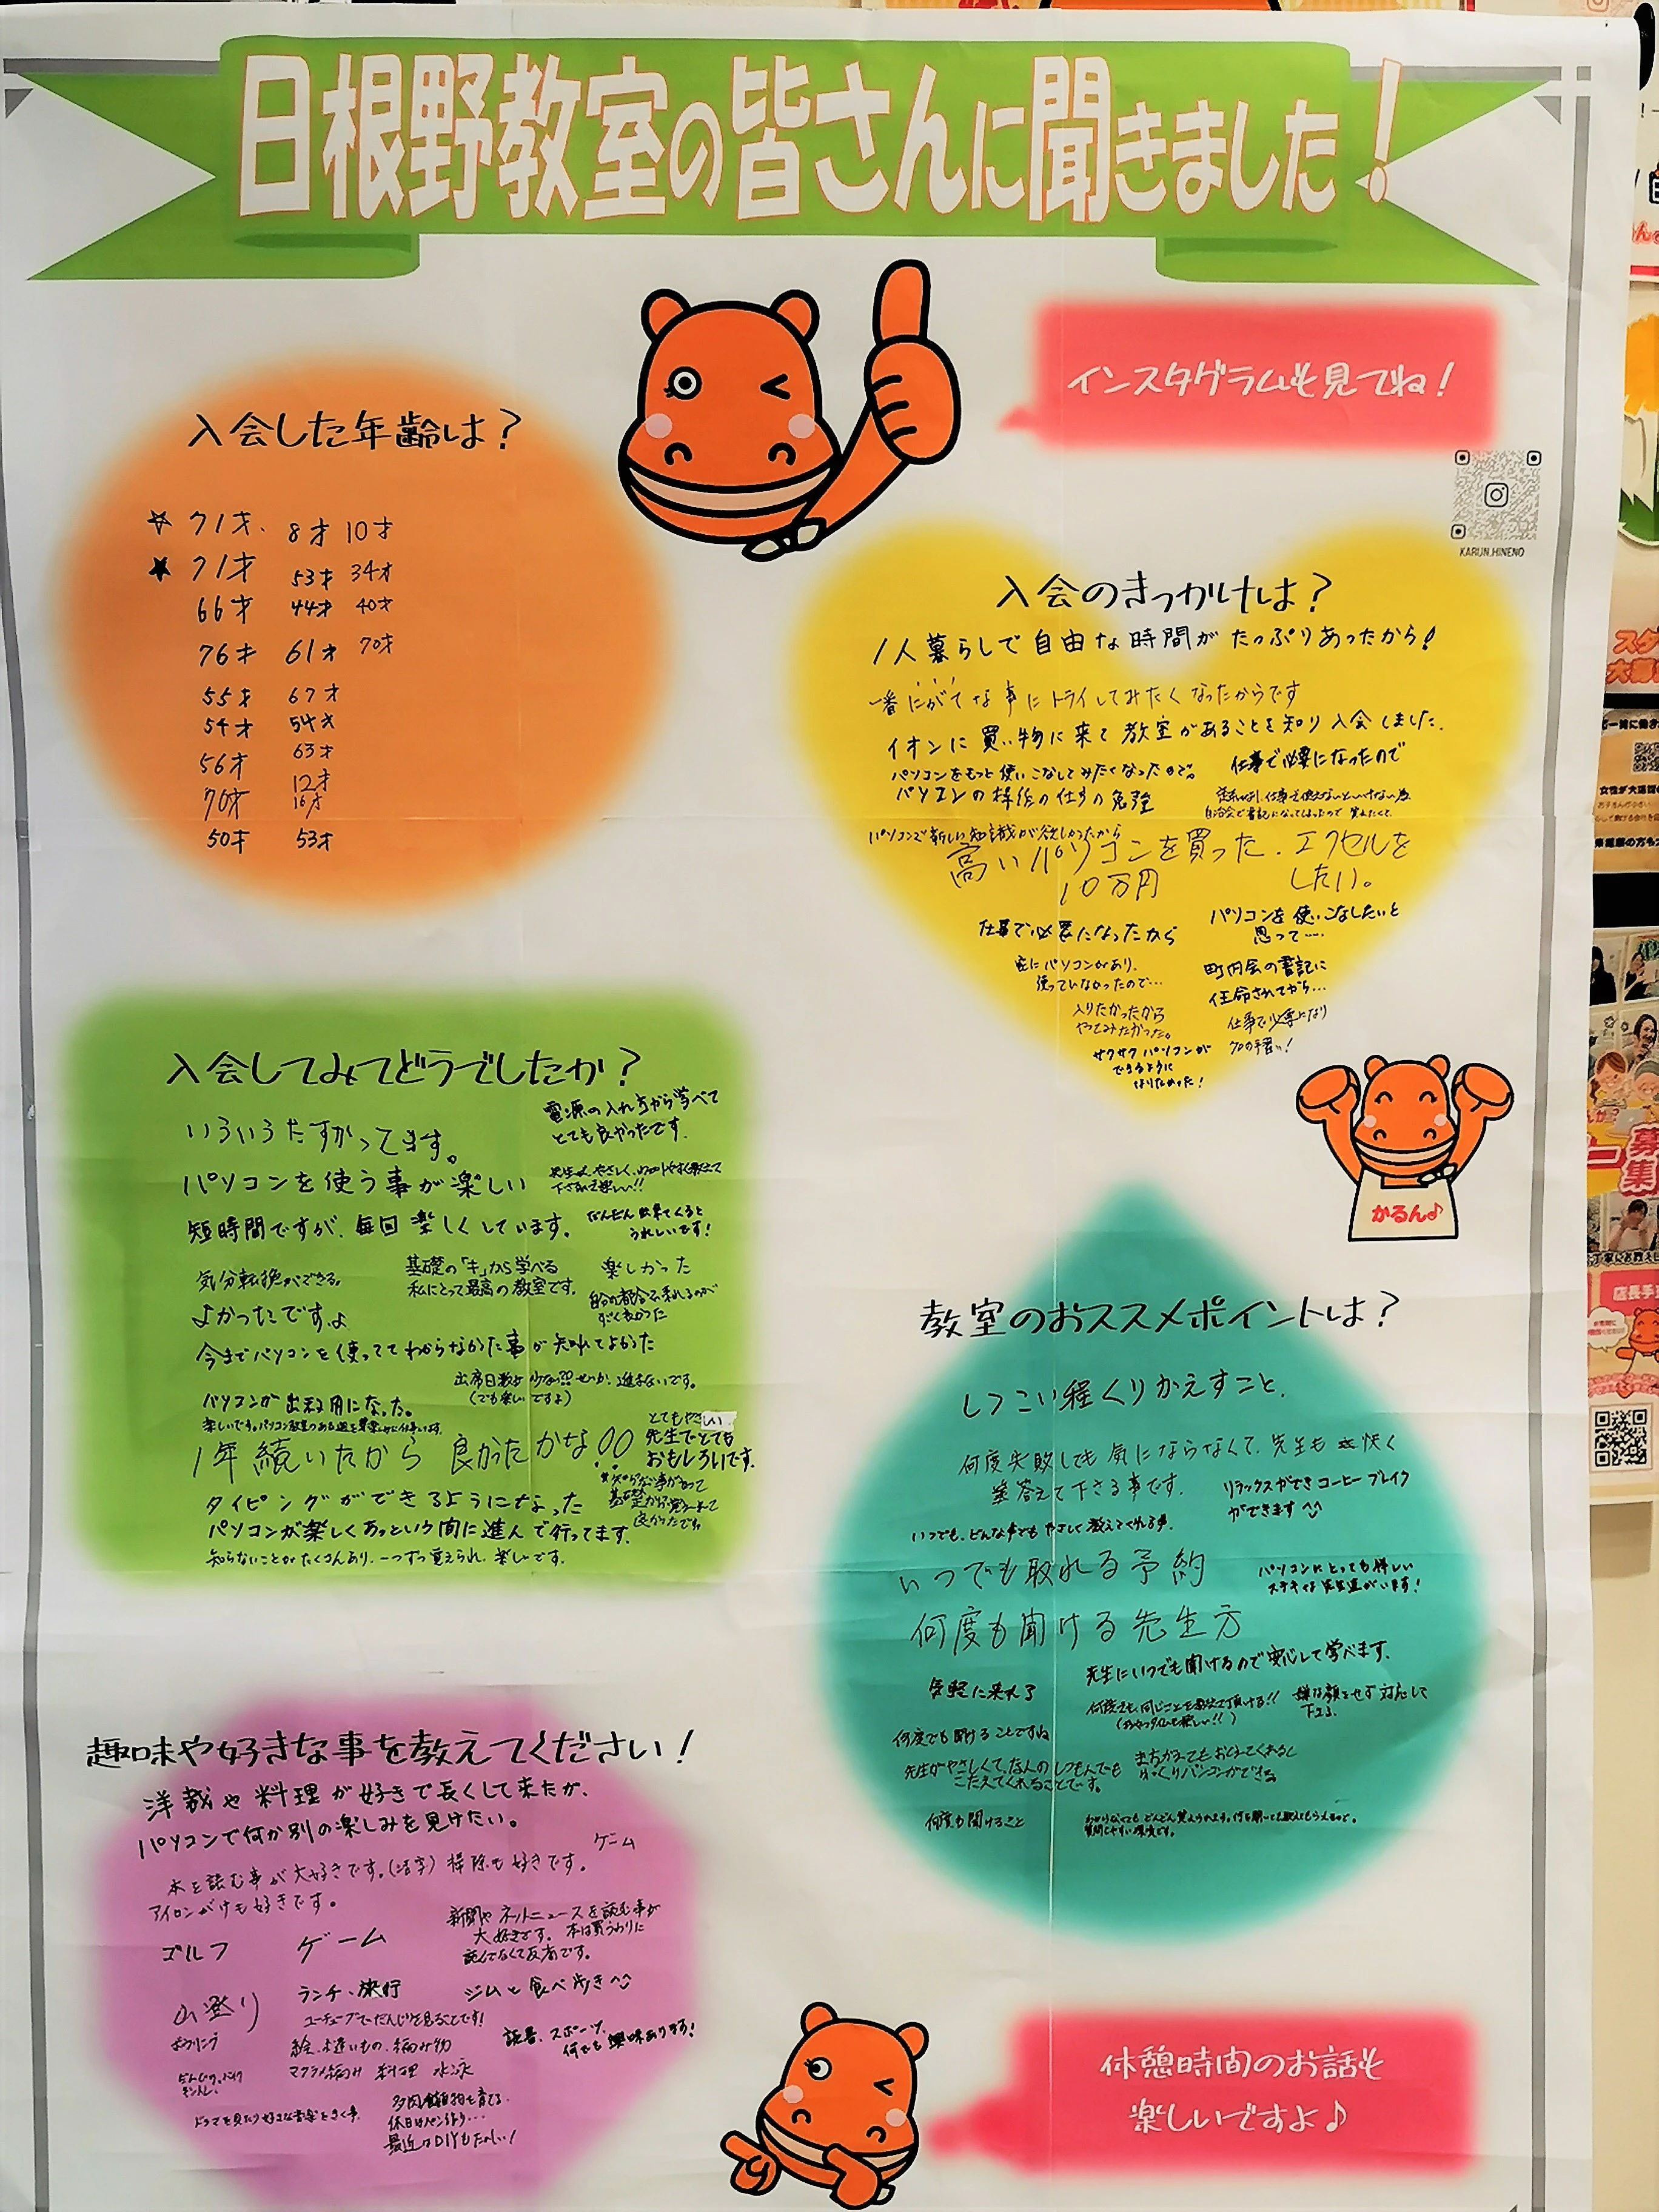 日根野教室の皆さんに聞きました!
インスタグラムも見てね!
KARUN.HINENO
入会した年齢は?
☆ 71才. 8才 10才
★ 71才 53才 34才
66才 44才 40才
76才 61才 70才
55才 67才
54才 54才
56才 63才
70才 12才
16才
50才 53才
入会のきっかけは?
1人暮らしで自由な時間がたっぷりあったから!
一番にがてな事にトライしてみたくなったからです
イオンに買い物に来て教室があることを知り入会しました.
パソコンをもっと使いこなしてみたくなったので。
仕事で必要になったので
パソコンの操作の仕方の勉強
自治会で書記になってしまったので 覚えたくて.
パソコンで新しい知識が欲しかったから
高いパソコンを買った. エクセルを
10万円 したい。
仕事で必要になったから
パソコンを使いこなしたいと
思って……
家にパソコンがあり、
使っていなかったので…
町内会の書記に
任命されてから…
入りたかったから
やってみたかった。
仕事で必要になり
70の手習い!
サクサクパソコンが
できるように
なりたかった!
かるん♪
入会してみてどうでしたか?
電源の入れ方から学べて
とても良かったです.
いろいろたすかってます。
パソコンを使う事が楽しい
先生が、やさしく、わかりやすく教えて
下されて楽しい!!
短時間ですが、毎回楽しくしています。
だんだん出来てくると
うれしいです!
気分転換ができる。
基礎の「キ」から学べる
私にとって最高の教室です。
楽しかった
よかったですよ
自分の都合で来れるのが
すごく良かった
今までパソコンを使っててわからなかった事が知れてよかった
(でも楽しいですよ)
パソコンが出来る用になった。
1年続いたから良かったかな!!
とてもやさしい
先生でとても
おもしろいです。
タイピングができるようになった
基礎から覚えれて
良かったです。
パソコンが楽しくあっという間に進んで行ってます.
知らないことがたくさんあり、一つずつ覚えられ、楽しいです.
教室のおススメポイントは?
しつこい程くりかえすこと.
何度失敗しても気にならなくて、先生も快く
答えて下さる事です.
リラックスができ コーヒーブレイク
ができます^^
いつでも、どんな事でもやさしく教えてくれる事.
いつでも取れる予約
パソコンにとっても詳しい
ステキな先生達がいます!
何度も聞ける先生方
先生にいつでも聞けるので安心して学べます.
気軽に来れる
何度でも、同じことを教えて頂ける!!
(おやつタイムも楽しい!!)
嫌な顔をせず対応して
下さる.
何度でも聞けることですね
先生がやさしくて、なんのしつもんでも
こたえてくれることです。
まちがえてもおしえてくれるし
ゆっくりパソコンができる
何度も聞けること
質問しやすい環境です。
趣味や好きな事を教えてください!
洋裁や料理が好きで長くして来たが、
パソコンで何か別の楽しみを見けたい。
ゲーム
本を読む事が大好きです。(活字) 掃除も好きです.
アイロンがけも好きです。
ゴルフ
ゲーム
新聞やネットニュースを読む事が
大好きです. 本は買うわりに
読んでなくて反省です。
山登り
ランチ、旅行
ジムと食べ歩き^^
ユーチューブでだんじりを見ることです!
ボウリング
絵、ぬいもの、編み物
読書、スポーツ、
何でも興味あります!
マクラメ編み 料理 水泳
ドラマを見たり好きな音楽をきく事.
多肉植物を育てる.
最近はDIYもたのしい!
休憩時間のお話も
楽しいですよ♪